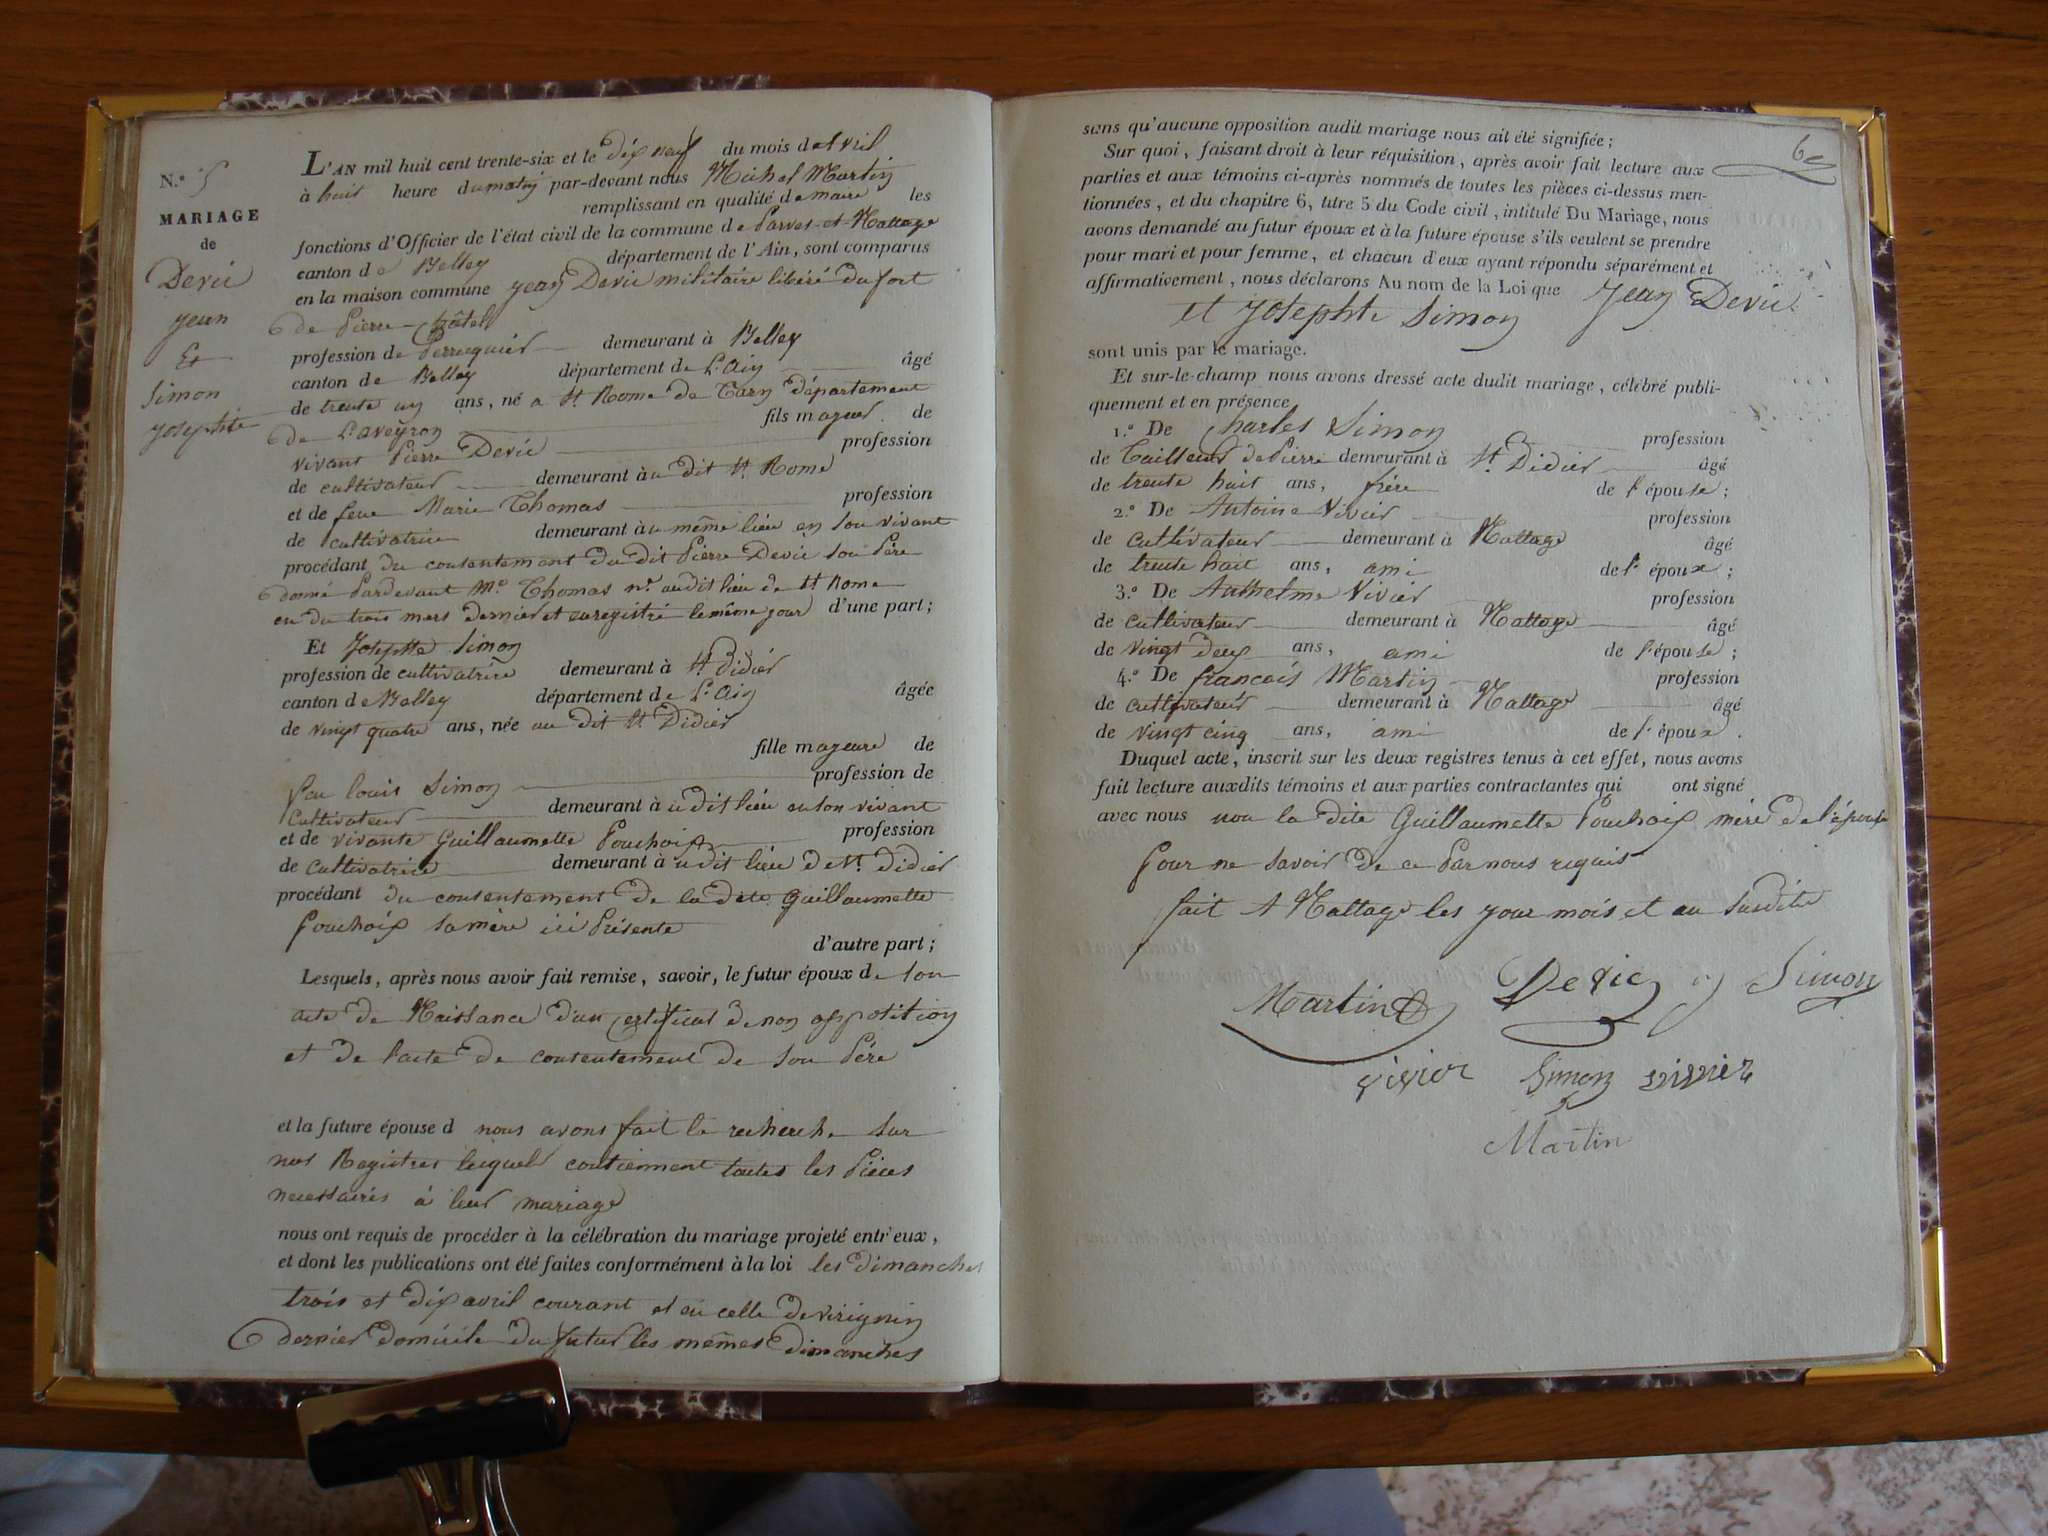 N.° 5
MARIAGE
de
Devic
jean
Et
Simon
josephte
L'AN mil huit cent trente-six et le dix neuf du mois d'avril
à huit heure du matin par-devant nous Michel Martin
remplissant en qualité de maire les
fonctions d'Officier de l'état civil de la commune de Parves et Nattage
canton de Belley département de l'Ain, sont comparus
en la maison commune jean Devic militaire libéré du fort
de Pierre-châtel
profession de Perruquier demeurant à Belley
canton de Belley département de L'ain âgé
de trente un ans, né a St. Rome de Tarn Département
de L'aveyron fils majeur de
vivant Pierre Devic profession
de cultivateur demeurant à u dit St Rome
et de feue Marie Thomas profession
de cultivatrice demeurant à u même lieu en son vivant
procédant du consentement du dit Pierre Devic son Père
donné Pardevant Me. Thomas nre. audit lieu de St Rome
en du trois mars dernier et enregistré le même jour d'une part;
Et Josephte Simon
profession de cultivatrice demeurant à St Didier
canton de Belley département de L'ain âgée
de vingt quatre ans, née au dit St Didier
fille majeure de
feu louis Simon profession de
cultivateur demeurant à u dit lieu en son vivant
et de vivante Guillaumette Pouchoix profession
de Cultivatrice demeurant à u dit lieu de St. Didier
procédant du consentement de la dite Guillaumette
Pouchoix sa mère ici Présente
d'autre part;
Lesquels, après nous avoir fait remise, savoir, le futur époux de son
acte de Naissance d'un certificat de non opposition
et de l'acte de consentement de son Père
et la future épouse d nous avons fait la recherche sur
nos Registres lequels contiennent toutes les Pièces
necessaires à leur mariage
nous ont requis de procéder à la célébration du mariage projeté entr'eux,
et dont les publications ont été faites conformément à la loi les dimanches
trois et dix avril courant et en celle de virignin
dernier domicile du futur les mêmes dimanches
6e
sans qu'aucune opposition audit mariage nous ait été signifiée;
Sur quoi, faisant droit à leur réquisition, après avoir fait lecture aux
parties et aux témoins ci-après nommés de toutes les pièces ci-dessus men-
tionnées, et du chapitre 6, titre 5 du Code civil, intitulé Du Mariage, nous
avons demandé au futur époux et à la future épouse s'ils veulent se prendre
pour mari et pour femme, et chacun d'eux ayant répondu séparément et
affirmativement, nous déclarons Au nom de la Loi que Jean Devic
et Josephte Simon
sont unis par le mariage.
Et sur-le-champ nous avons dressé acte dudit mariage, célébré publi-
quement et en présence
1.° De Charles Simon profession
de Tailleur de Pierre demeurant à St. Didier âgé
de trente huit ans, frère de l'épouse;
2.° De Antoine Vivier profession
de cultivateur demeurant à Nattage âgé
de trente huit ans, ami de l'époux;
3.° De Anthelme Vivier profession
de cultivateur demeurant à Nattage âgé
de vingt deux ans, ami de l'épouse;
4.° De francois Martin profession
de cultivateur demeurant à Nattage âgé
de vingt cinq ans, ami de l'époux.
Duquel acte, inscrit sur les deux registres tenus à cet effet, nous avons
fait lecture auxdits témoins et aux parties contractantes qui ont signé
avec nous non la dite Guillaumette Pouchoix mère de l'épouse
Pour ne savoir de ce Par nous requis
fait A Nattage les jour mois et an susdits
Martin Devic j Simon
vivier Simon vivier
Martin